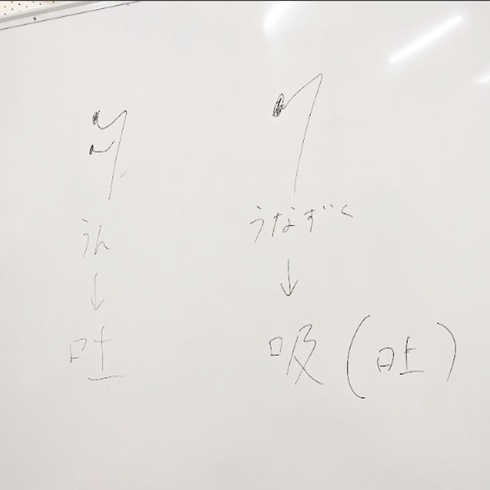 うん
↓
吐
うなずく
↓
吸(吐)